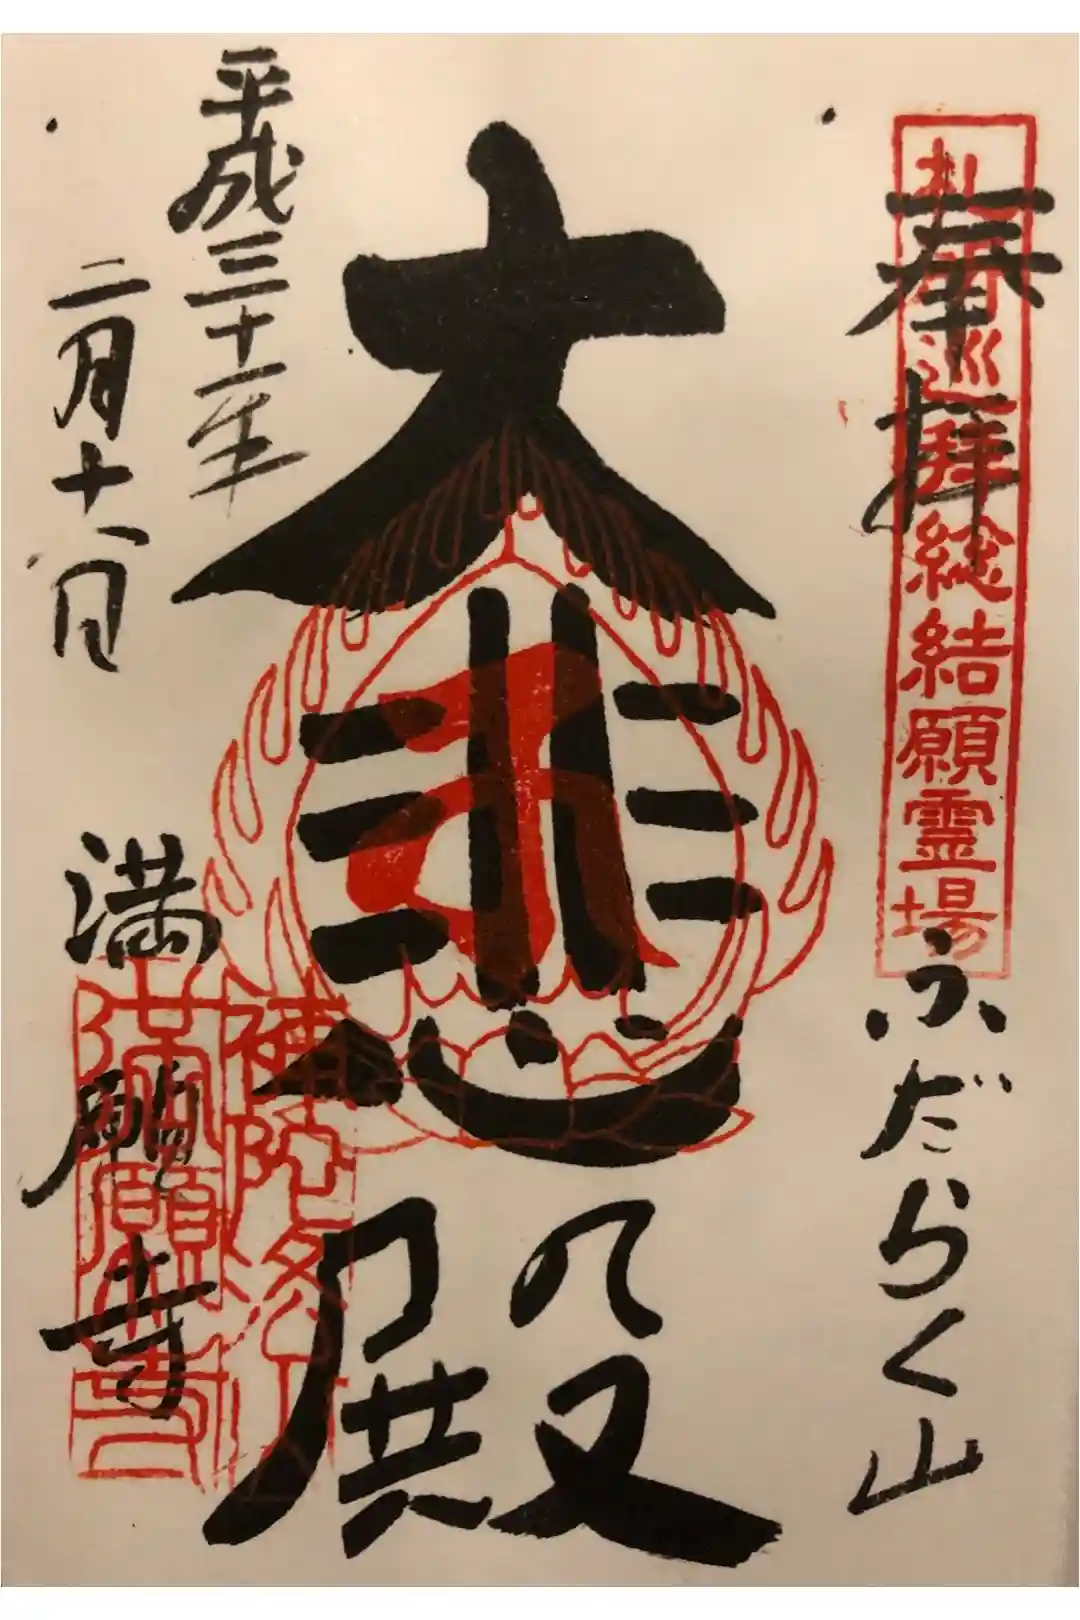 奉拝
札所巡拝総結願霊場
ふだらく山
大悲殿
平成三十一年
二月十八日
満願寺
補陀洛山
満願寺